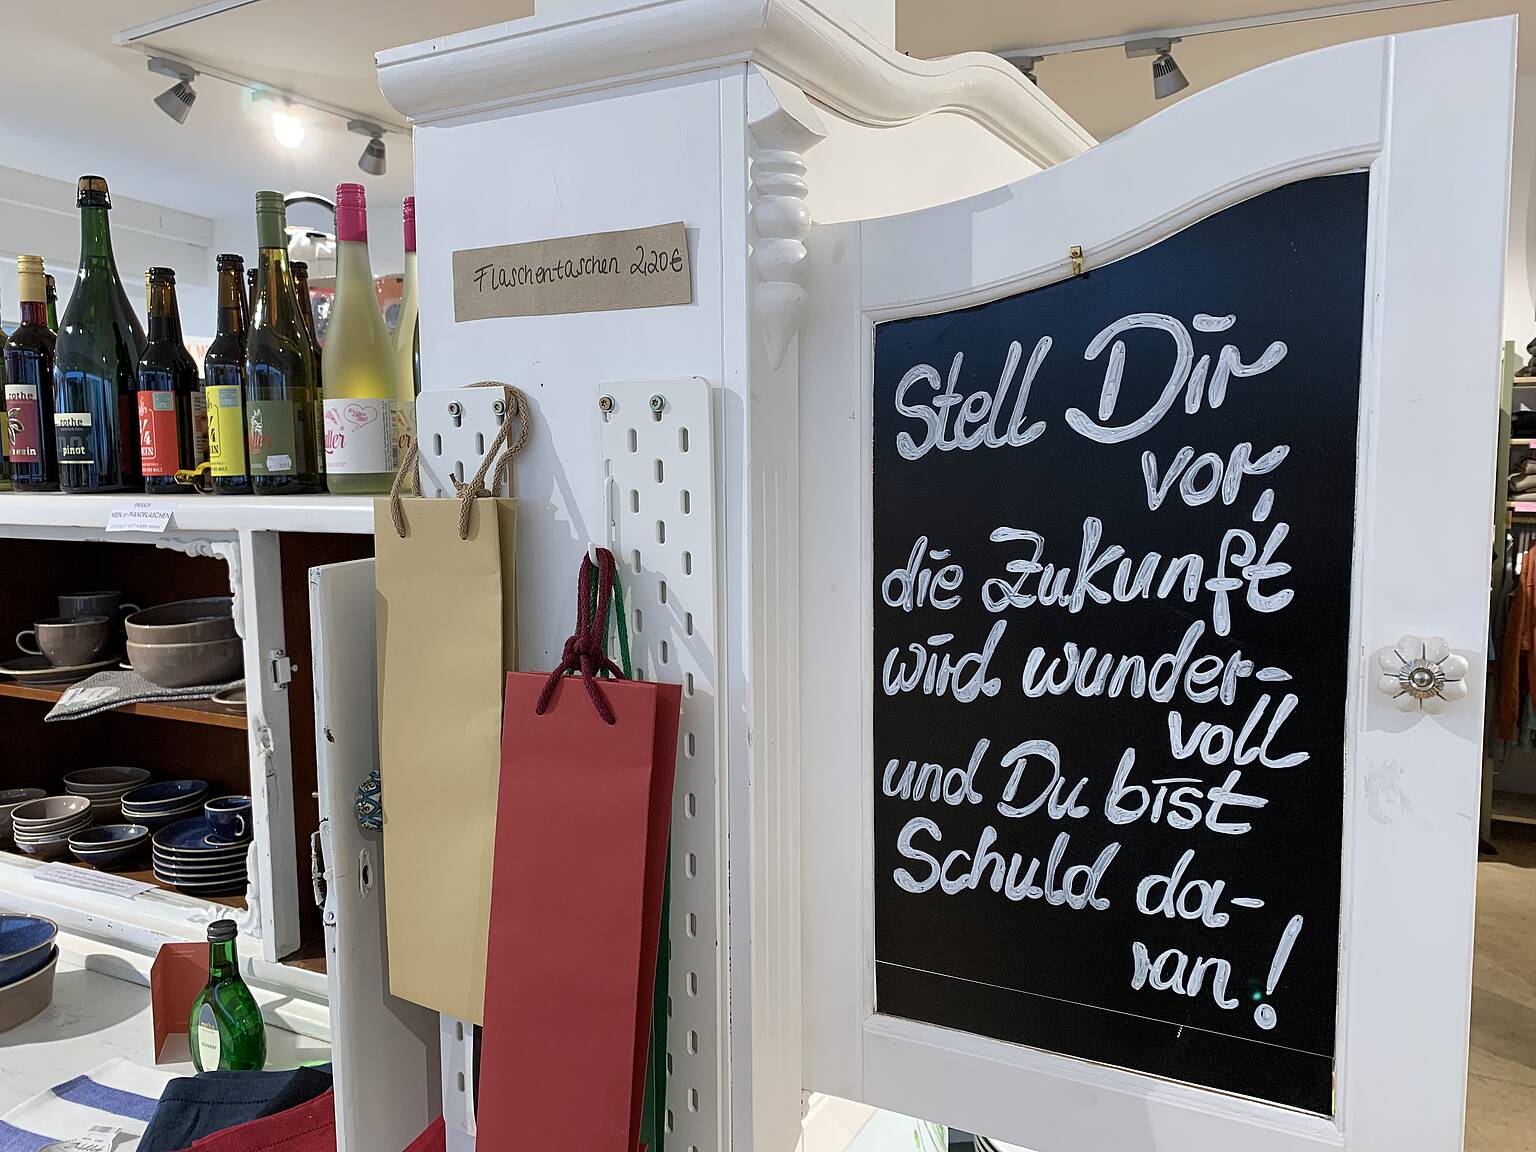 Flaschentaschen 2,20€
Stell Dir
vor,
die Zukunft
wird wunder-
voll
und Du bist
Schuld da-
ran!
rothe
rothe
pinot
WEIN in PFANDFLASCHEN